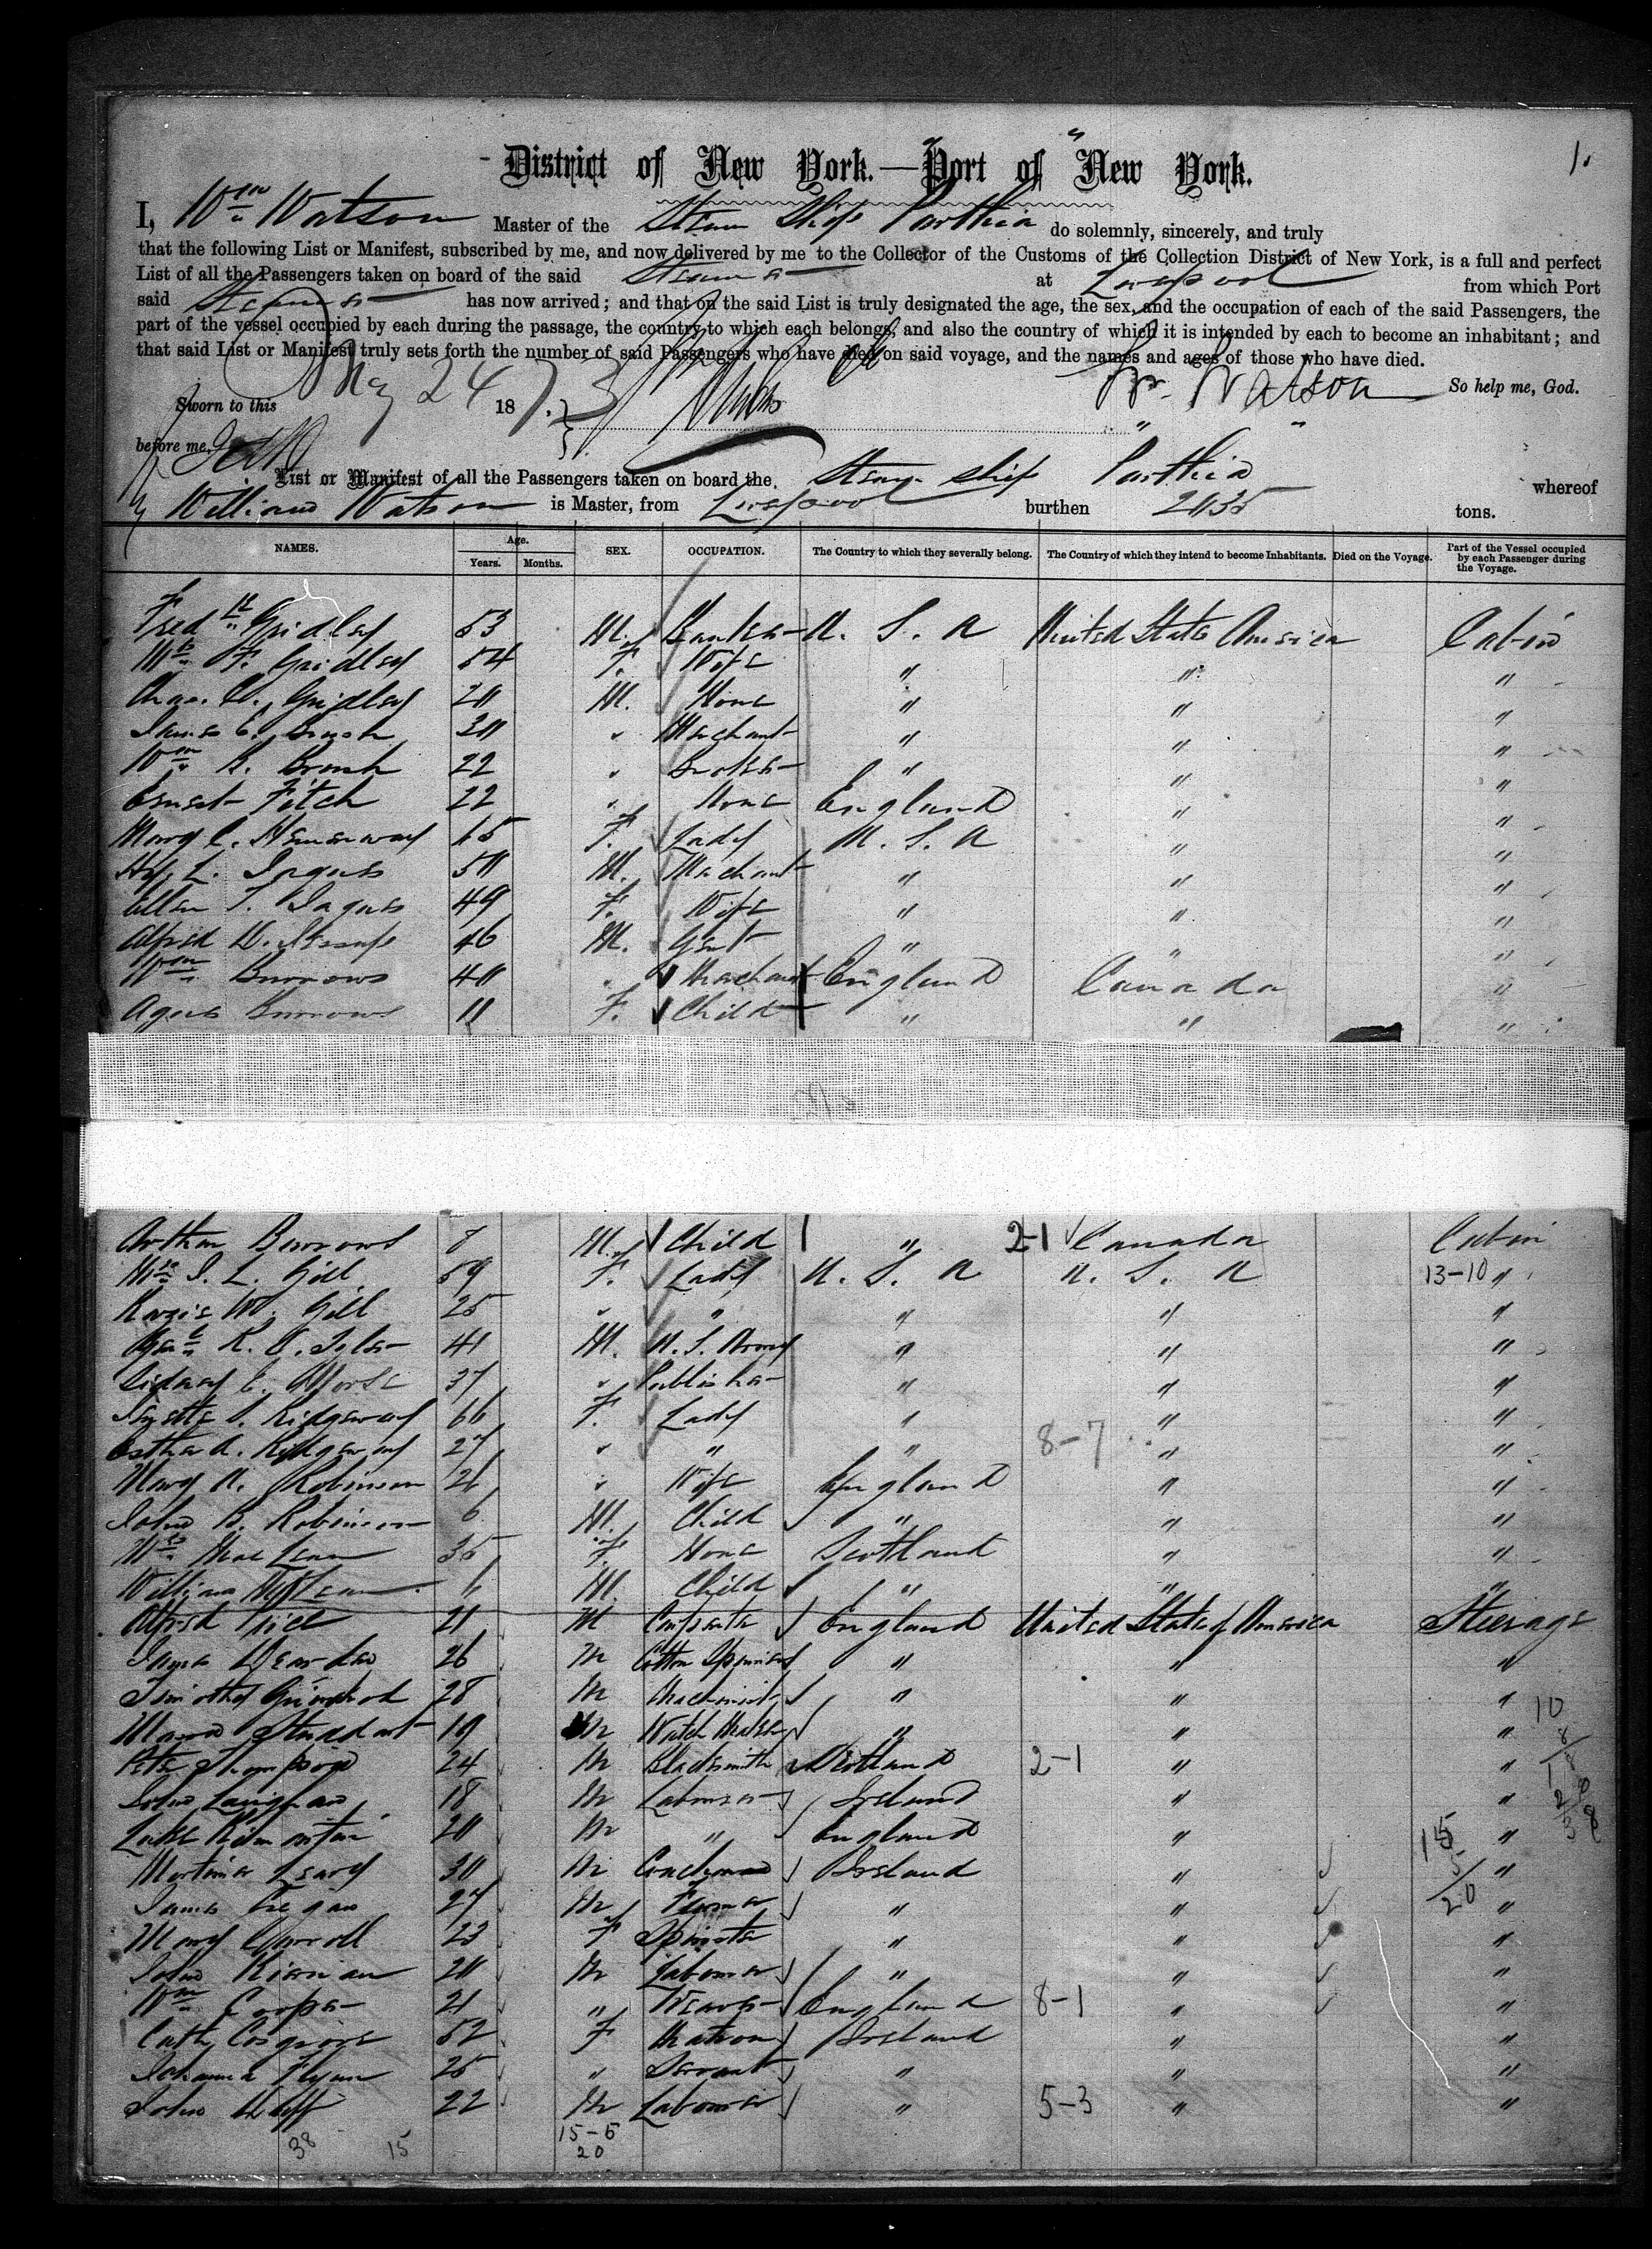 1.
District of New York.—Port of New York.
I, Wm Watson Master of the Steam Ship Parthia do solemnly, sincerely, and truly
that the following List or Manifest, subscribed by me, and now delivered by me to the Collector of the Customs of the Collection District of New York, is a full and perfect
List of all the Passengers taken on board of the said Steamer at Liverpool from which Port
said Steamer has now arrived; and that on the said List is truly designated the age, the sex, and the occupation of each of the said Passengers, the
part of the vessel occupied by each during the passage, the country to which each belongs, and also the country of which it is intended by each to become an inhabitant; and
that said List or Manifest truly sets forth the number of said Passengers who have died on said voyage, and the names and ages of those who have died.
So help me, God.
Sworn to this May 24 1873 Wm. Watson
before me,
List or Manifest of all the Passengers taken on board the Steam ship Parthia whereof
William Watson is Master, from Liverpool burthen 2035 tons.
NAMES. Age. Years. Months. SEX. OCCUPATION. The Country to which they severally belong. The Country of which they intend to become Inhabitants. Died on the Voyage. Part of the Vessel occupied by each Passenger during the Voyage.
Fredk Gridley 53 M. Banker U. S. A United States America Cabin
Mrs F. Gridley 54 F. Wife " " "
Chas. Gridley 20 M. None " " "
James C. 30 " Merchant " " "
Wm R. 22 " Broker " " "
Ernest Fitch 22 " None England " "
Mary C. Hemenway 65 F. Lady U. S. A " "
L. Jaques 50 M. Merchant " " "
Ellen T. Jaques 49 F. Wife " " "
Alfred Jessup 46 M. Gent " " "
Wm Burrows 40 " Merchant England Canada "
Agnes Burrows 11 F. Child " " "
Arthur Burrows 8 M. Child " 2-1 Canada Cabin
Mrs S. L. Gill 59 F. Lady U. S. A U. S. A 13-10 "
W. Gill 25 " " " " "
Genl R. O. Tyler 41 M. U. S. Army " " "
Sidney E. Morse 37 " Publisher " " "
Ridgeway 66 F. Lady " " "
Esther A. Ridgeway 27 " " " 8-7 " "
Mary A. Robinson 26 " Wife England " "
John B. Robinson 6 M. Child " " "
Mrs MacLean 35 F. None Scotland " "
William McLean 6 M. Child " " "
Alfred 21 M Carpenter England United States of America Steerage
James Wearden 26 M Cotton Spinner " " "
Timothy Grimshod 28 M Machinist " " "
Studdart 19 M Watch Maker " " "
Peter Thompson 24 M Blacksmith Scotland 2-1 " "
John 18 M Labourer Ireland " "
20 M " England " "
Mortimer Leary 30 M Coachman Ireland " "
James Cregan 27 M Farmer " " "
Mary Carroll 23 F Spinster " " "
John Kiernan 20 M Labourer " " "
Wm Cooper 21 " Weaver England 8-1 " "
Cath Cosgrove 52 F Matron Ireland " "
Johanna Flynn 25 " Servant " " "
John Duff 22 M Labourer " 5-3 " "
38 15 15-5
20